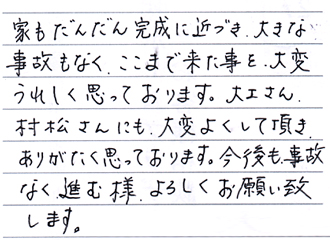 家もだんだん完成に近づき、大きな
事故もなく、ここまで来た事を、大変
うれしく思っております。大工さん、
村松さんにも、大変よくして頂き、
ありがたく思っております。今後も、事故
なく、進む様、よろしくお願い致
します。